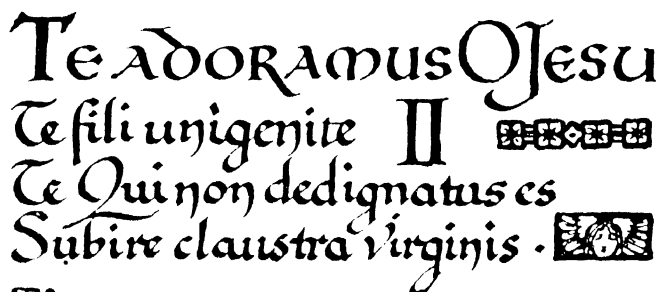 Te adoramus O Jesu
Te fili unigenite II
Te Qui non dedignatus es
Subire claustra virginis .